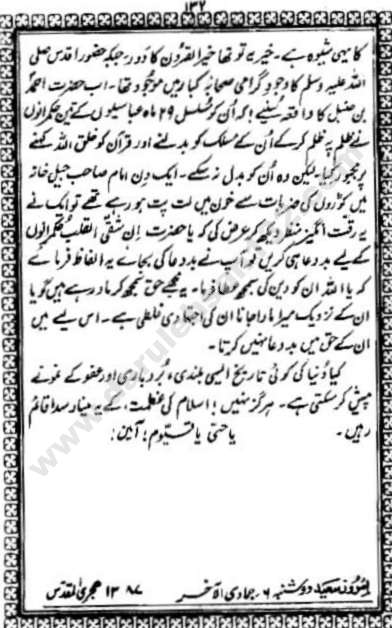 ۱۳۲
کا یہی شیوہ ہے۔ خیر یہ تو تھا خیرالقرون کا دور، جبکہ حضور اقدس صلی
اللہ علیہ وسلم کا وجودِ گرامی صحابہ کبار میں موجود تھا۔ اب حضرت احمدؒ
بن حنبل کا واقعہ سُنیے! کہ اُن کو مسلسل ۲۹ ماہ عباسیوں کے تین حکمرانوں
نے ظلم پہ ظلم کر کے اُن کے مسلک کو بدلنے اور قرآن کو خلق اللہ کہنے
پر مجبور کیا۔ لیکن وہ اُن کو بدل نہ سکے۔ ایک دن امام صاحب جیل خانہ
میں کوڑوں کی ضربات سے خون میں لت پت ہو رہے تھے تو ایک نے
یہ رقّت انگیز منظر دیکھ کر عرض کی کہ یا حضرت اِن شقی القلب حکمرانوں
کے لیے بددعا ہی کریں تو آپ نے بددعا کی بجائے یہ الفاظ فرمائے
کہ یا اللہ ان کو دین کی سمجھ عطا فرما۔ یہ مجھے حق سمجھ کر مار رہے ہیں گویا
ان کے نزدیک میرا مارا جانا ان کی اجتہادی غلطی ہے۔ اس لیے میں
ان کے حق میں بددعا نہیں کرتا۔
کیا دُنیا کی کوئی تاریخ ایسی بلندی، بُردباری اور عفو کے نمونے
پیش کر سکتی ہے۔ ہرگز نہیں! اسلام کی عظمت کے یہ مینار سدا قائم
رہیں۔ یا حیّ یا قیّوم! آمین!
امروز سعید دوشنبہ ۶؍ جمادی الآخر ۱۳۸۷ ہجری المقدس